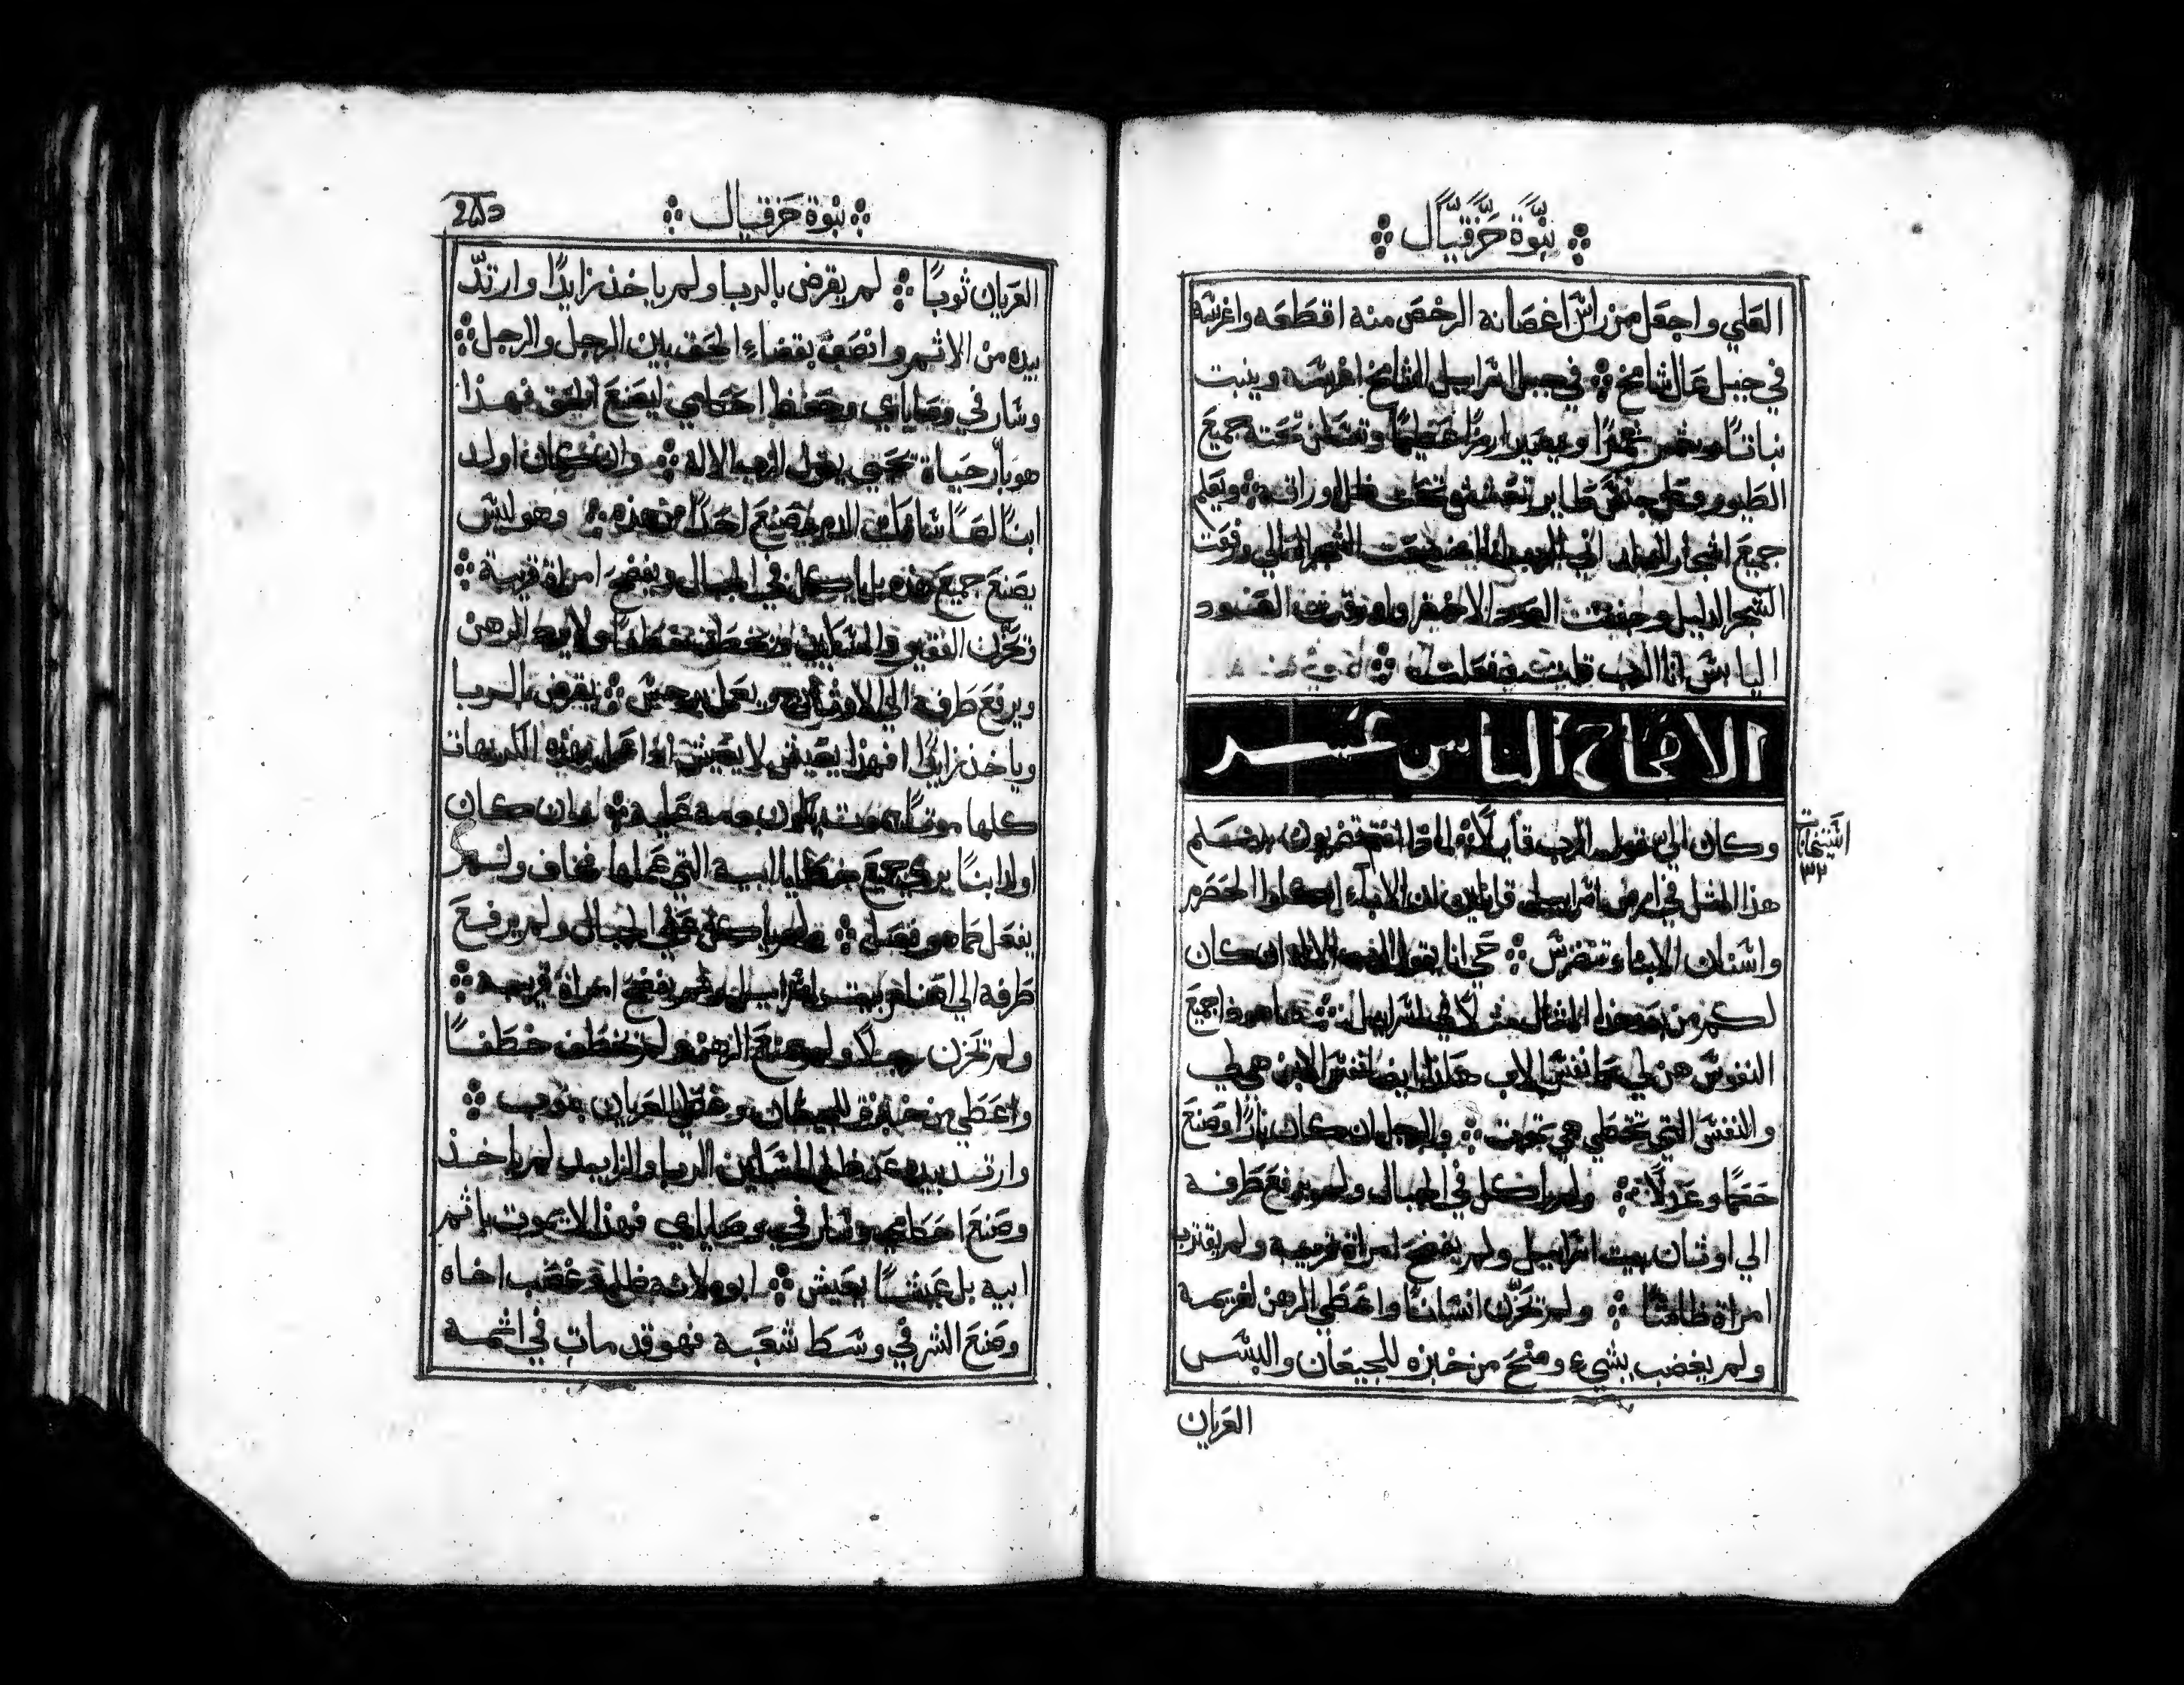 نبوة حزقيال
العلي واجعل من راس اغصانه الرخص منه اقطعه واغرسه
في جبل عال شامخ في جبل اسراييل الشامخ اغرسه وينبت
نباتًا ويثمر ثمرًا ويصير ارزًا عظيمًا وتسكن تحته جميع
الطيور وكل جنس طاير تعشش تحت ظل اوراقه ويعلم
جميع اشجار البلد اني الرب انا وضعت الشجر العالي ورفعت
الشجر الذليل وجففت العود الاخضر واورقت العود
اليابس انا الرب قلت وفعلت
الاصحاح الثامن عشر
وكان الي قول الرب قايلًا لماذا انتم تضربون بينكم
هذا المثل في ارض اسراييل قايلين ان الاباء اكلوا الحصرم
واسنان الابناء تضرس حي انا يقول الرب الاله ان كان
لكم من بعد هذا المثال مثلًا في اسراييل ها هوذا جميع
النفوس هن لي كما نفس الاب هكذا ايضا نفس الابن هي لي
والنفس التي تخطي هي تموت والرجل ان كان بارًا وصنع
حكمًا وعدلًا ولم ياكل في الجبال ولم يرفع طرفه
الي اوثان بيت اسراييل ولم يفضح امراة قريبه ولم يقترب
امراة طامثًا ولم تحزن انسانًا واعطي الرهن لغريمه
ولم يغضب بشيء ومنح من خبزه للجيعان والبس
العريان
نبوة حزقيال
العريان ثوبًا لم يقرض بالربا ولم ياخذ زايدًا وارتد
بيده من الاثم وانصف بقضاء الحق بين الرجل والرجل
وسار في وصاياي وحفظ احكامي ليصنع الحق فهذا
هو بار حياة تحيي يقول الرب الاله وان كان اولد
ابنًا لصًا سافك الدم ويصنع احدًا من هذه وهو ليس
يصنع جميع هذه بل ياكل في الجبال ويفضح امراة قريبه
تحزن الفقير والمسكين وتخطف خطفًا ولا يرد الرهن
ويرفع طرفه الي الاوثان يعمل رجس يقرض بالربا
وياخذ زايدًا افهذا يعيش لا يعيش اذا عمل بهذه الكريهات
كلها موتًا يموت يكون دمه عليه فان كان
اولد ابنًا يري جميع خطايا ابيه التي عملها فخاف ولم
يفعل كما هو فعل ولم ياكل علي الجبال ولم يرفع
طرفه الي اصنام بيت اسراييل ولم يفضح امراة قريبه
ولم تحزن رجلًا ولم يمنع الرهن ولم تخطف خطفًا
واعطي من خبزه للجيعان وغطي العريان بثوب
وارتد بيده عن ظلم المسكين الربا والزايد لم ياخذ
وصنع احكامي وسار في وصاياي فهذا لا يموت باثم
ابيه بل عيشًا يعيش ابوه لانه ظلم غصب اخاه
وصنع الشر في وسط شعبه فهو قد مات في اثمه